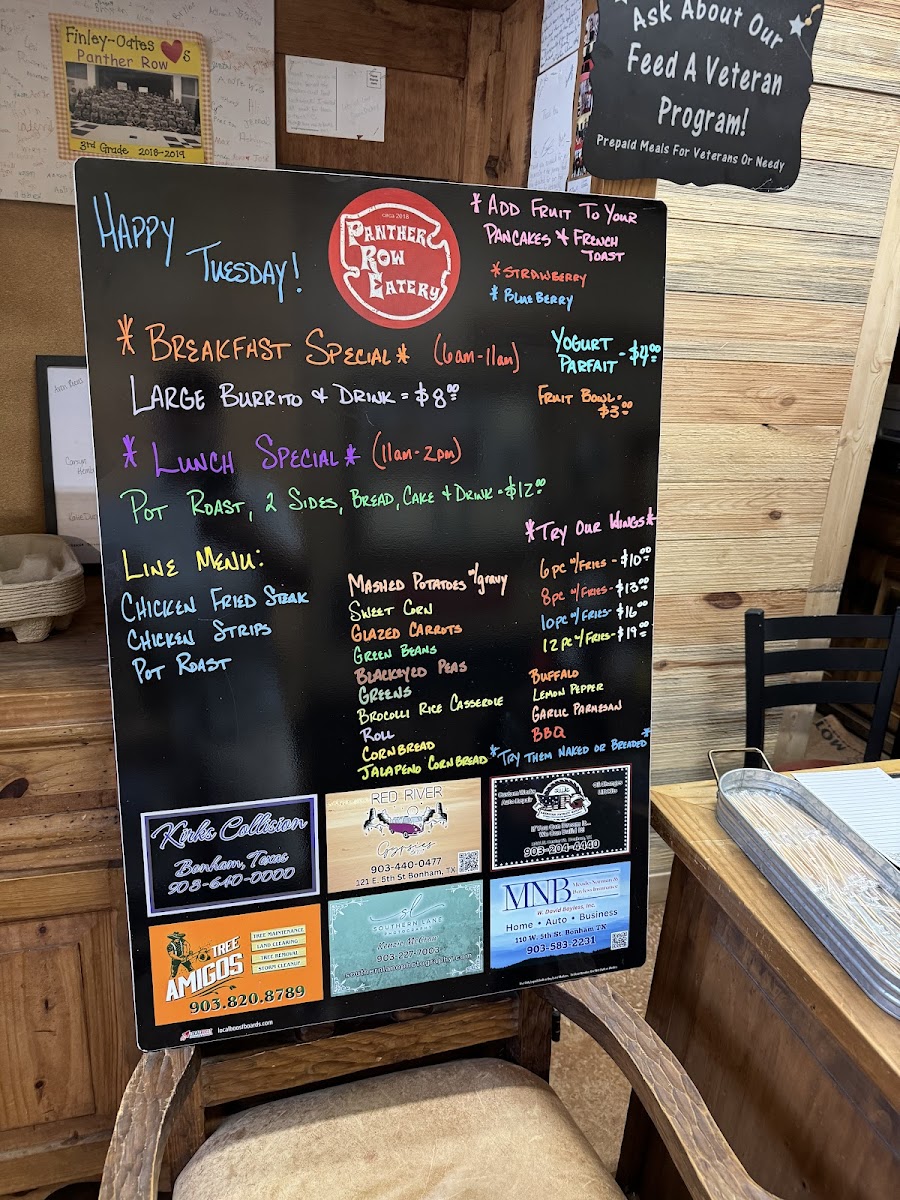 Finley-Oates ♥s
Panther Row
3rd Grade 2018-2019
Ask About Our
Feed A Veteran
Program!
Prepaid Meals For Veterans Or Needy
Happy
Tuesday!
circa 2018
Panther
Row
Eatery
* Add Fruit To Your
Pancakes & French
Toast
* Strawberry
* Blueberry
* Breakfast Special * (6am-11am)
Large Burrito & Drink = $8.00
Yogurt
Parfait - $4.00
Fruit Bowl -
$3.00
* Lunch Special * (11am-2pm)
Pot Roast, 2 Sides, Bread, Cake & Drink = $12.00
Line Menu:
Chicken Fried Steak
Chicken Strips
Pot Roast
Mashed Potatoes w/gravy
Sweet Corn
Glazed Carrots
Green Beans
Blackeyed Peas
Greens
Brocolli Rice Casserole
Roll
Cornbread
Jalapeno Cornbread
* Try Our Wings *
6pc w/Fries - $10.00
8pc w/Fries - $13.00
10pc w/Fries - $16.00
12pc w/Fries - $19.00
Buffalo
Lemon Pepper
Garlic Parmesan
BBQ
* Try Them Naked or Breaded *
Kirks Collision
Bonham, Texas
903-640-0000
RED RIVER
Gypsies
903-440-0477
121 E. 5th St Bonham, TX
Custom Works
Auto Repair
Oil Changes
If You Can Dream It...
We Can Build It!
903-204-4440
TREE
AMIGOS
TREE MAINTENANCE
LAND CLEARING
TREE REMOVAL
STORM CLEANUP
903.820.8789
sl
SOUTHERN LANE
903-227-7003
southernlanephotography.com
MNB
W. David Bayless, Inc.
Home • Auto • Business
110 W. 5th St. Bonham TX
903-583-2231
localboostboards.com